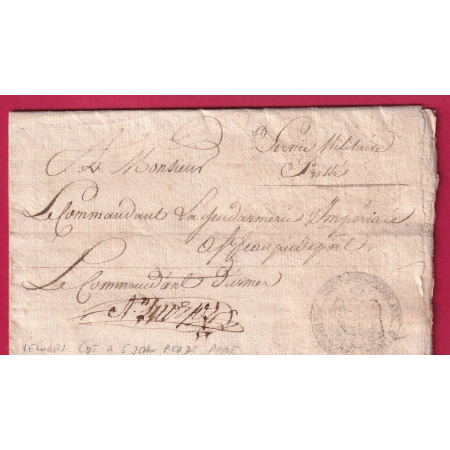 Service Militaire
Pressé
A Monsieur
Le Commandant La Gendarmerie Impériale
A St Jean piedeport
Le Commandant D'armes
CDT A S JEAN PIED DE PORT